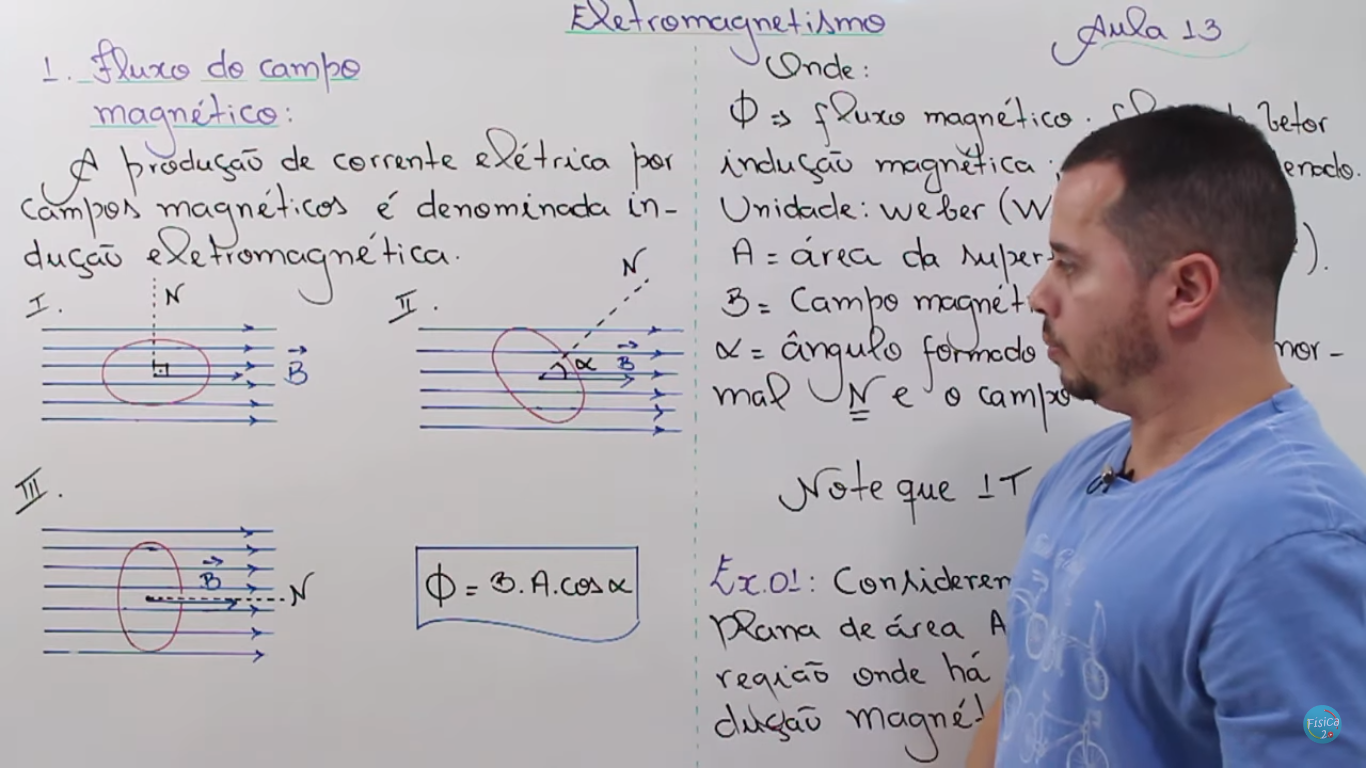 Eletromagnetismo
Aula 13
1. Fluxo do campo
magnético:
A produção de corrente elétrica por
campos magnéticos é denominada in-
dução eletromagnética.
I.
N
B
II.
N
α
B
III.
B
N
Φ = B.A.cosα
Onde:
Φ ⇒ fluxo magnético. vetor
indução magnética
Unidade: weber (W
A = área da super
).
B = Campo magnéti
α = ângulo formado nor-
mal N e o campo
Note que 1T
Ex.01: Consideren
plana de área A
região onde há
dução magné
Física 2.0